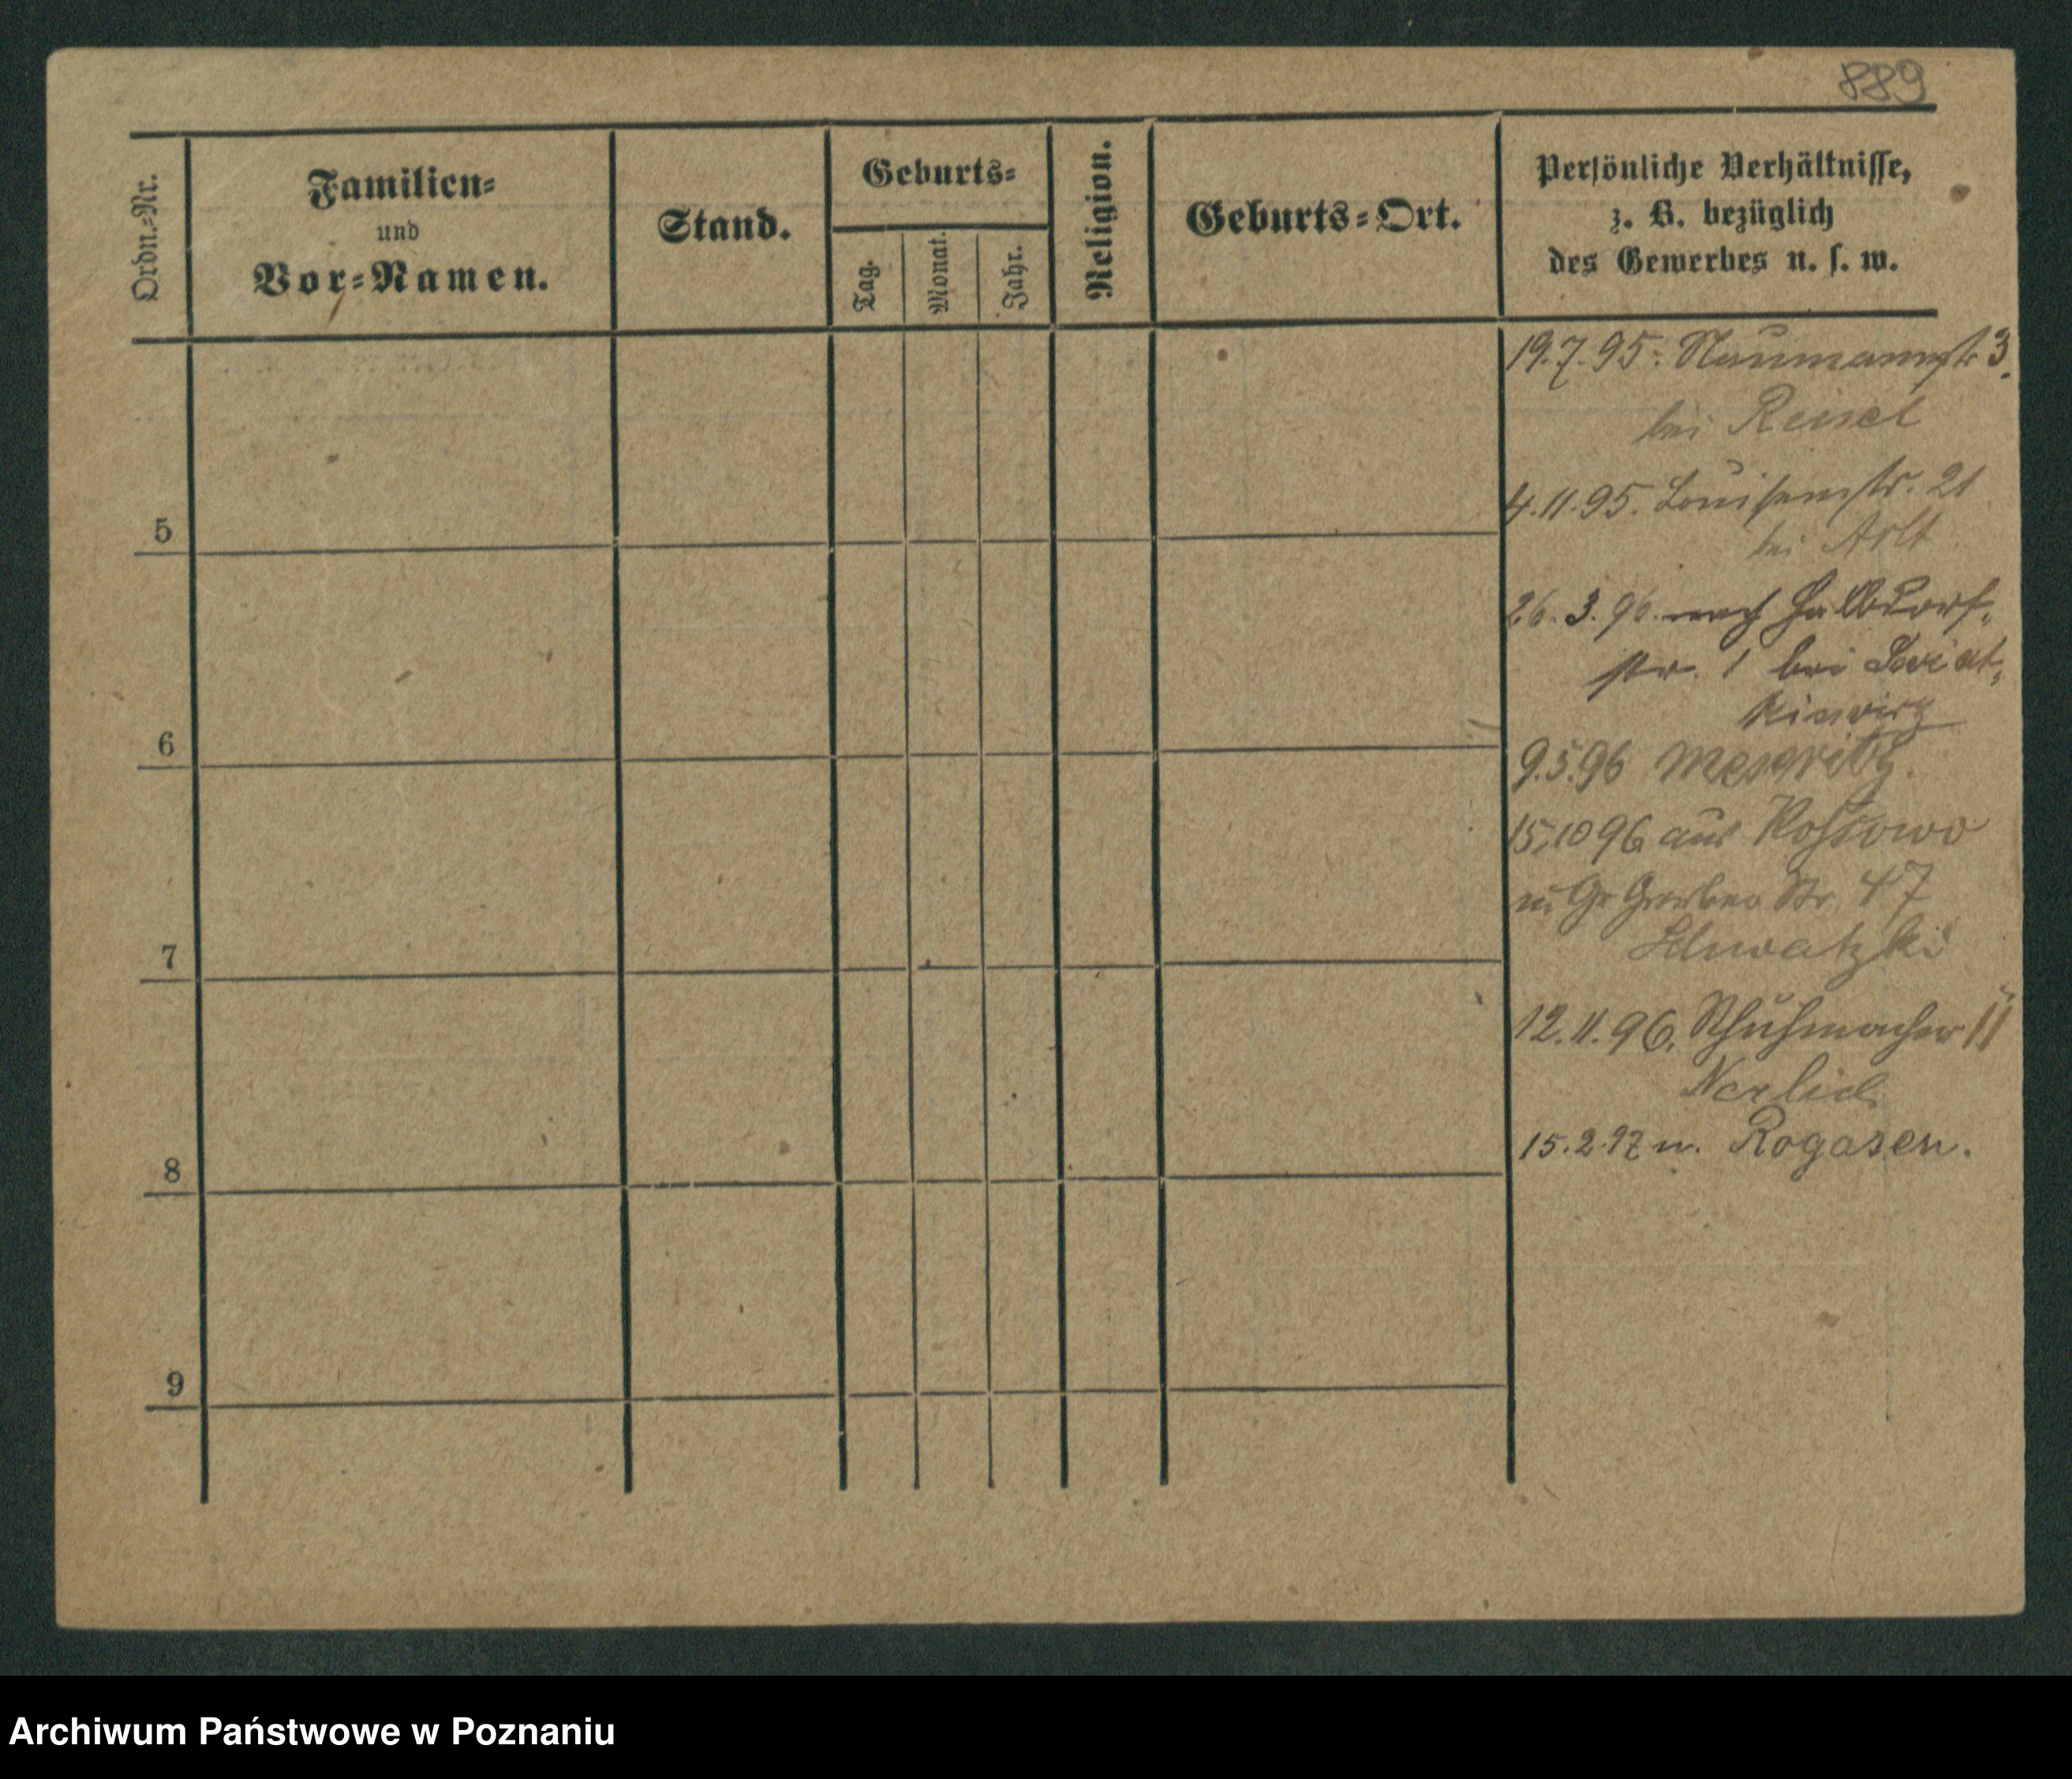 889
Ordn.=Nr.
Familien=
und
Vor=Namen.
Stand.
Geburts=
Tag.
Monat.
Jahr.
Religion.
Geburts=Ort.
Persönliche Verhältnisse,
z. B. bezüglich
des Gewerbes u. s. w.
19.7.95. Naumannstr 3.
bei Reisel
4.11.95. Louisenstr. 21
bei Arlt
26.3.96. nach Halbdorf=
str. 1 bei
9.5.96 Meseritz.
15.10 96 aus
n. Gr Gerber Str 47
12.11.96. Schuhmacher 11
Nerlich
15.2.97 n. Rogasen.
5
6
7
8
9
Archiwum Państwowe w Poznaniu